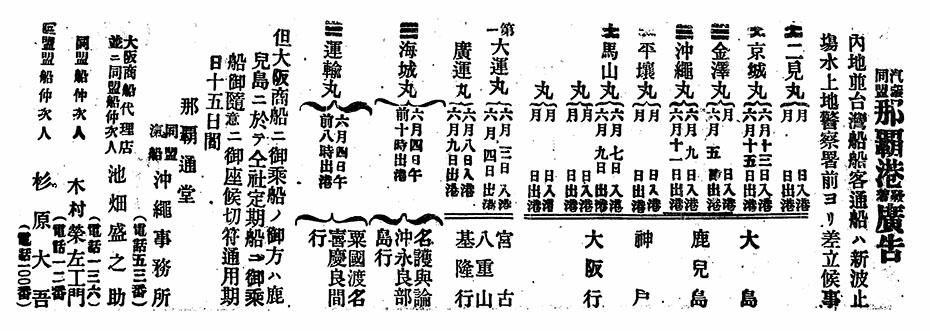 汽船同盟 那覇港發着廣告
内地並台灣船船客通船ハ新波止
塲水上地警察署前ヨリ差立候事
二見丸 月 日入港 月 日出港
京城丸 六月十三日入港 六月十五日出港
大島
金澤丸 月 日入港 六月五日 時出港
沖繩丸 月 日入港 六月十一日出港
鹿兒島
平壤丸 月 日入港 月 日出港
神戸
馬山丸 六月七日入港 六月九日出港
丸 月 日入港 月 日出港
丸 月 日入港 月 日出港
大阪行
第一大運丸 六月三日入港 六月四日出港
廣運丸 六月八日入港 六月九日出港
宮古
八重山
基隆行
海城丸 六月四日午前十時出港
名護與論
沖永良部
島行
運輸丸 六月四日午前八時出港
粟國渡名
喜慶良間
行
但大阪商船ニ御乘船ノ御方ハ鹿
兒島ニ於テ仝社定期船ニ御乘
船御隨意ニ御座候切符通用期
日十五日間
那覇通堂
同盟汽船 沖繩事務所
(電話五三番)
大阪商船代理店
並ニ同盟船仲次人 池畑盛之助
(電話一三六)
同盟船仲次人 木村榮左工門
(電話一二番)
同盟船仲次人 杉原大吾
(電話一〇〇番)